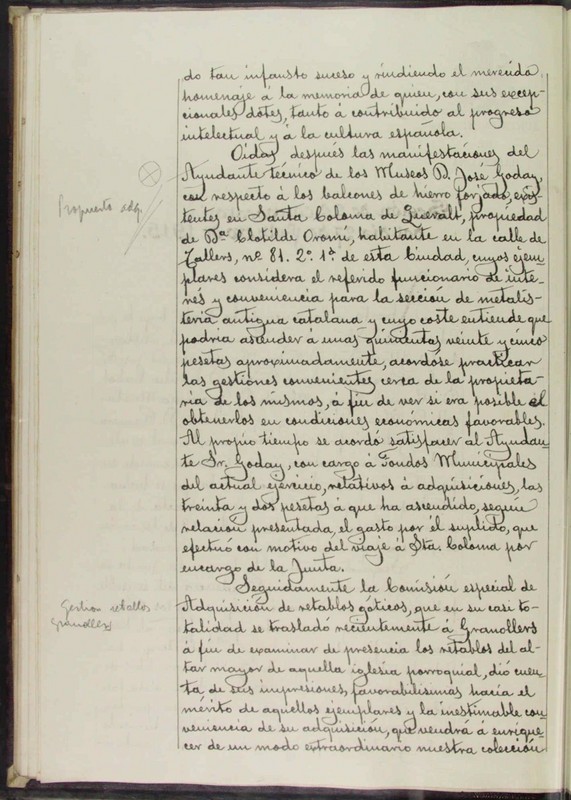 do tan infausto suceso y rindiendo el merecido
homenaje á la memoria de quien, con sus excep-
cionales dotes, tanto á contribuido al progreso
intelectual y á la cultura española.
Oidas después las manifestaciones del
Ayudante técnico de los Museos D. José Goday,
con respecto á los balcones de hierro forjado, exis-
tentes en Santa Coloma de Queralt, propiedad
de Dª Clotilde Oromí, habitante en la calle de
Tallers, nº 81. 2º 1ª de esta Ciudad, cuyos ejem
plares considera el referido funcionario de inte-
rés y conveniencia para la sección de metalis-
teria antigua catalana y cuyo coste entiende que
podria ascender á unas quinientas veinte y cinco
pesetas aproximadamente, acordóse practicar
las gestiones convenientes cerca de la propieta-
ria de los mismos, á fin de ver si era posible el
obtenerlos en condiciones económicas favorables.
Al propio tiempo se acordó satisfacer al Ayudan-
te Sr. Goday, con cargo á Fondos Municipales
del actual ejercicio, relativos á adquisiciones, las
treinta y dos pesetas á que ha ascendido, según
relación presentada, el gasto por él suplido, que
efectuó con motivo del viaje á Sta. Coloma por
encargo de la Junta.
Seguidamente la Comisión especial de
Adquisición de retablos goticos, que en su casi to-
talidad se trasladó recientemente á Granollers
á fin de examinar de presencia los retablos del al-
tar mayor de aquella iglesia parroquial, dió cuen-
ta de sus impresiones, favorabilisimas hacia el
mérito de aquellos ejemplares y la inestimable con
veniencia de su adquisición, que vendrá á enrique-
cer de un modo extraordinario nuestra colección
Propuesta adq.
Gestion retablos
Granollers